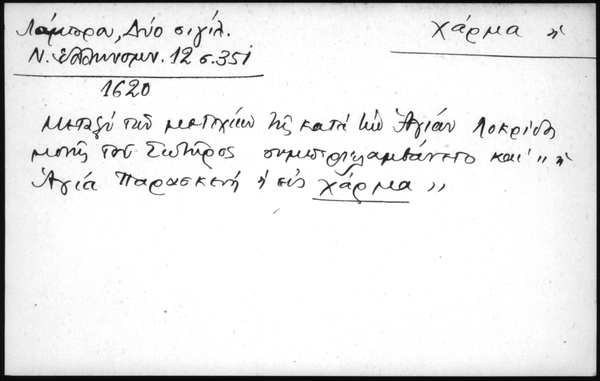 Λάμπρου, Δύο σιγίλ.
Χάρμα ἡ
Ν. Ἑλληνομν. 12 σ. 351
1620
μεταξύ τῶν μετοχίων τῆς κατά τήν Ἁγιάν Λοκρίδος
μονῆς τοῦ Σωτῆρος συμπεριλαμβάνετο καί "ἡ
Ἁγία Παρασκευή ἡ εἰς Χάρμα"